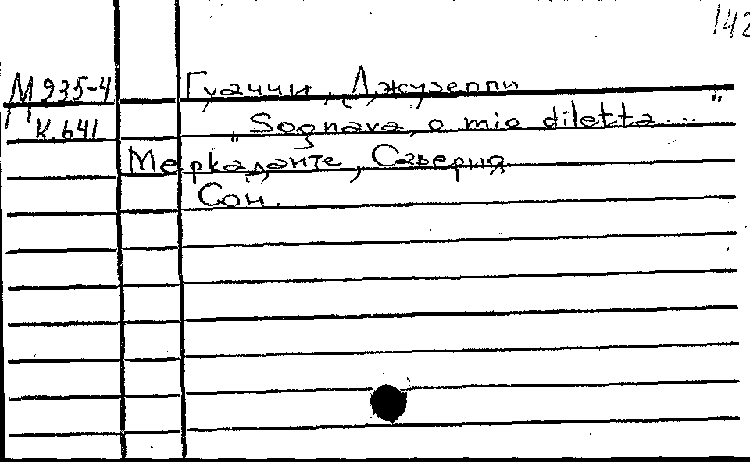 142
М 935-4 Гуаччи, Джузеппи
К.641 „Sognava, o mio diletta..."
Меркаданте, Саверио
Сон.